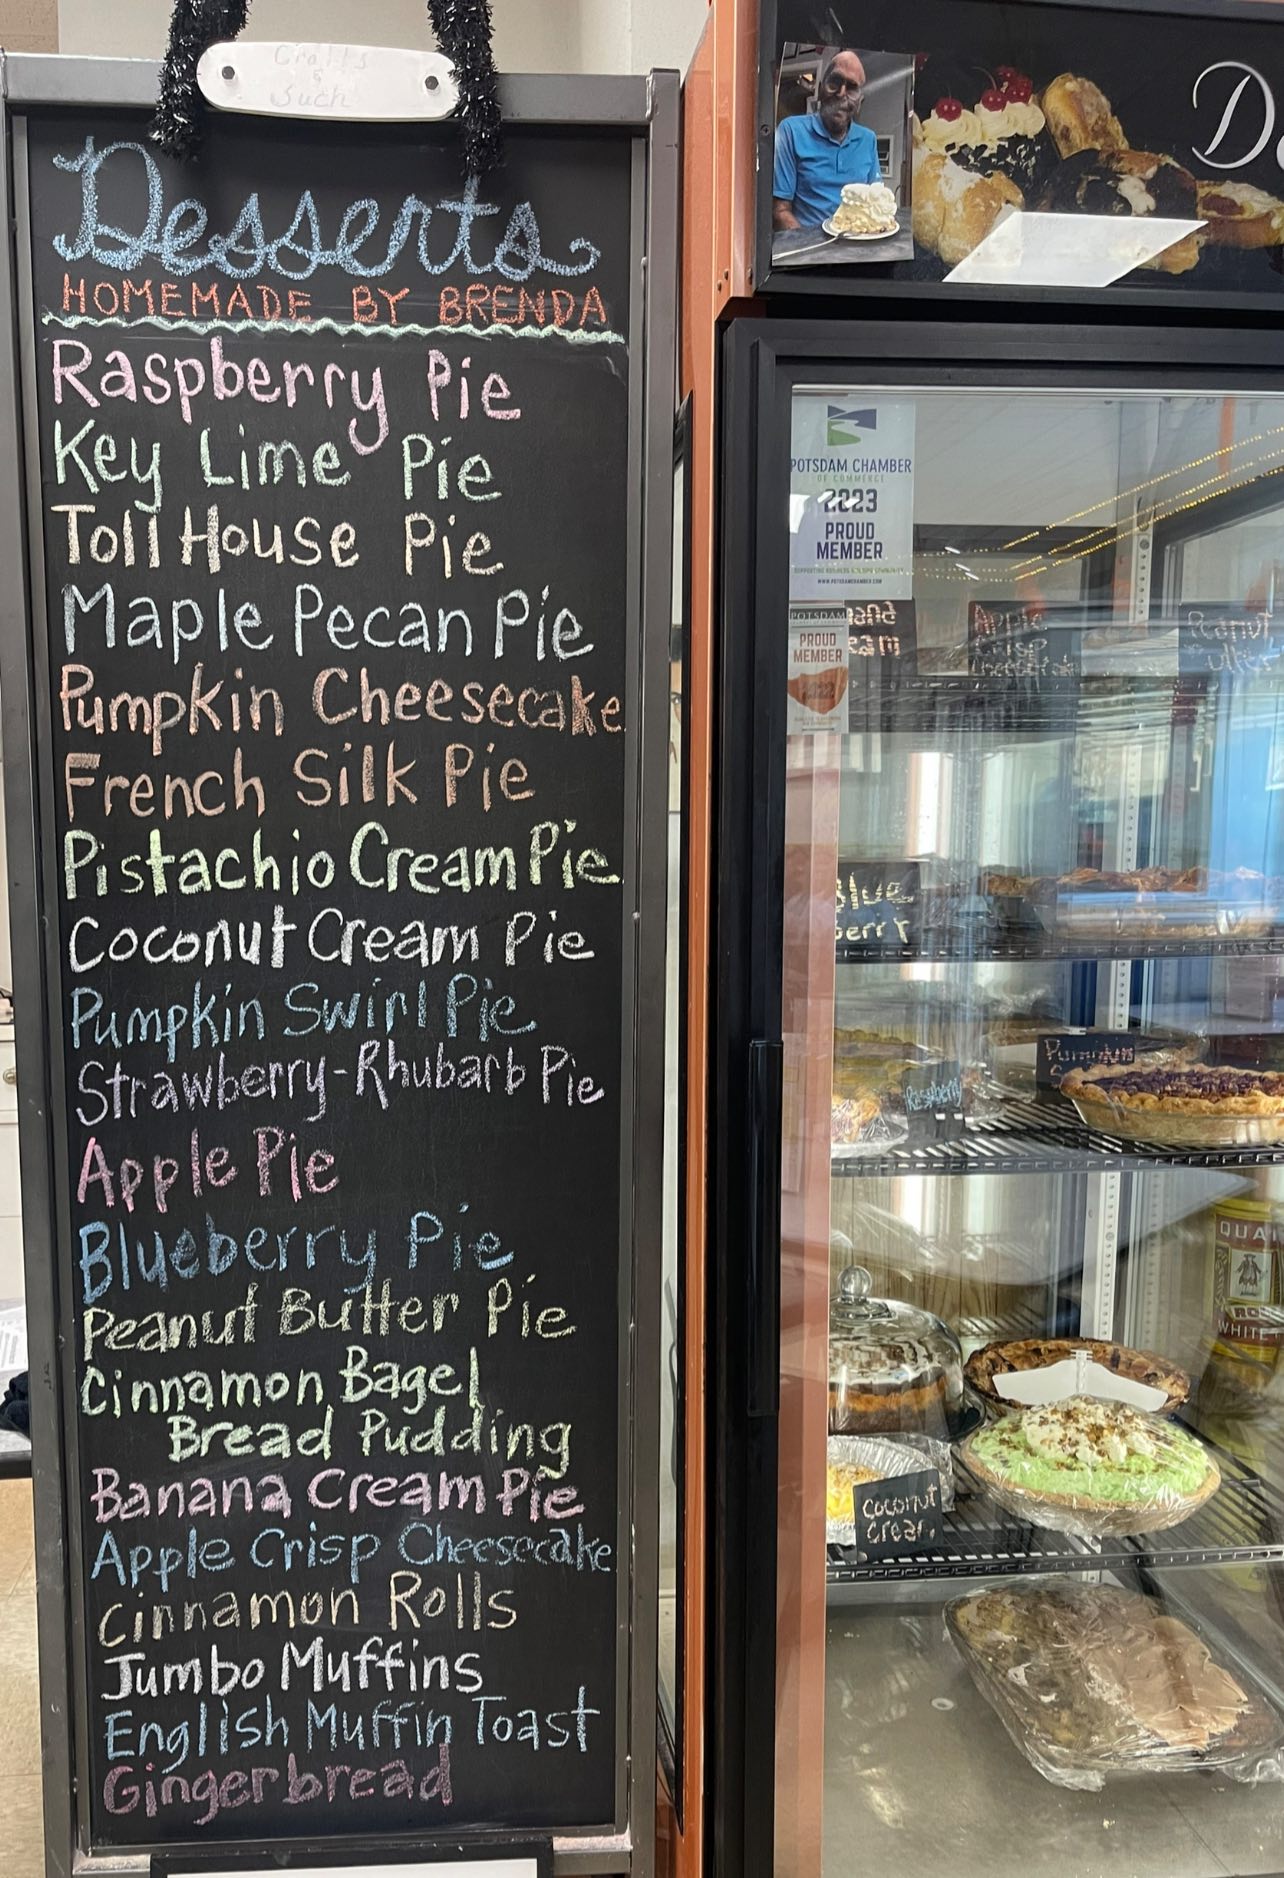 Crafts
&
Such
Desserts
HOMEMADE BY BRENDA
Raspberry Pie
Key Lime Pie
Toll House Pie
Maple Pecan Pie
Pumpkin Cheesecake
French Silk Pie
Pistachio Cream Pie
Coconut Cream Pie
Pumpkin Swirl Pie
Strawberry-Rhubarb Pie
Apple Pie
Blueberry Pie
Peanut Butter Pie
Cinnamon Bagel
Bread Pudding
Banana Cream Pie
Apple Crisp Cheesecake
Cinnamon Rolls
Jumbo Muffins
English Muffin Toast
Gingerbread
De
POTSDAM CHAMBER
OF COMMERCE
2023
PROUD
MEMBER
WWW.POTSDAMCHAMBER.COM
POTSDAM
PROUD
MEMBER
2022
Blue
berry
Raspberry
coconut
cream
QUA
WHITE